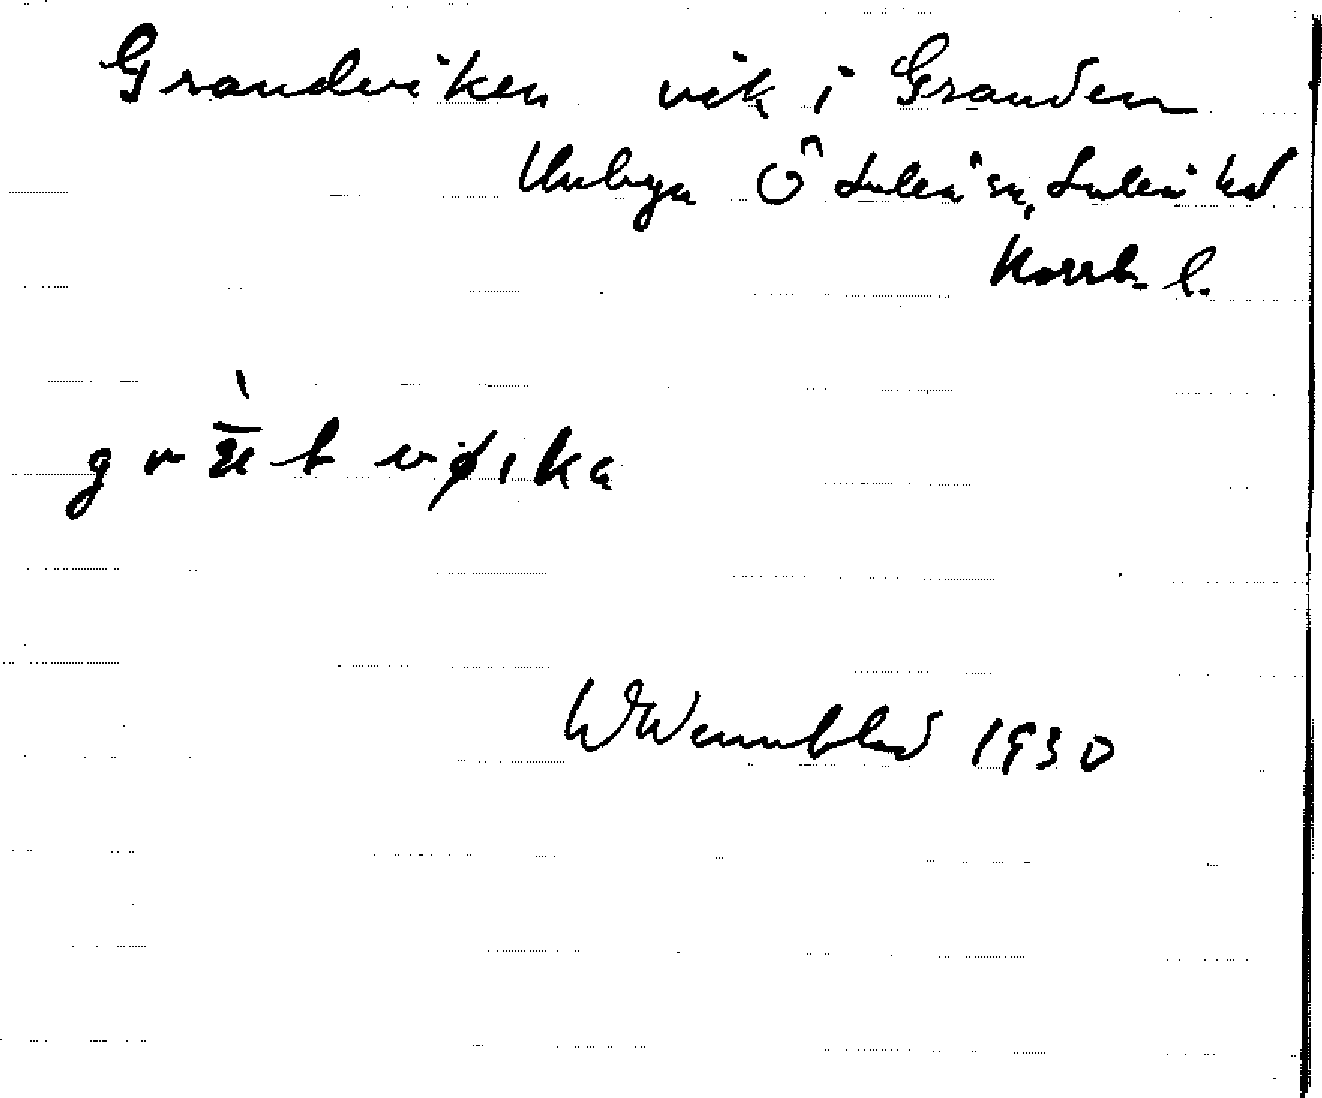 Grandviken vik i Granden
Unbyn Ö Luleå sn, Luleå hd
Norrb. l.
W Wennblad 1930